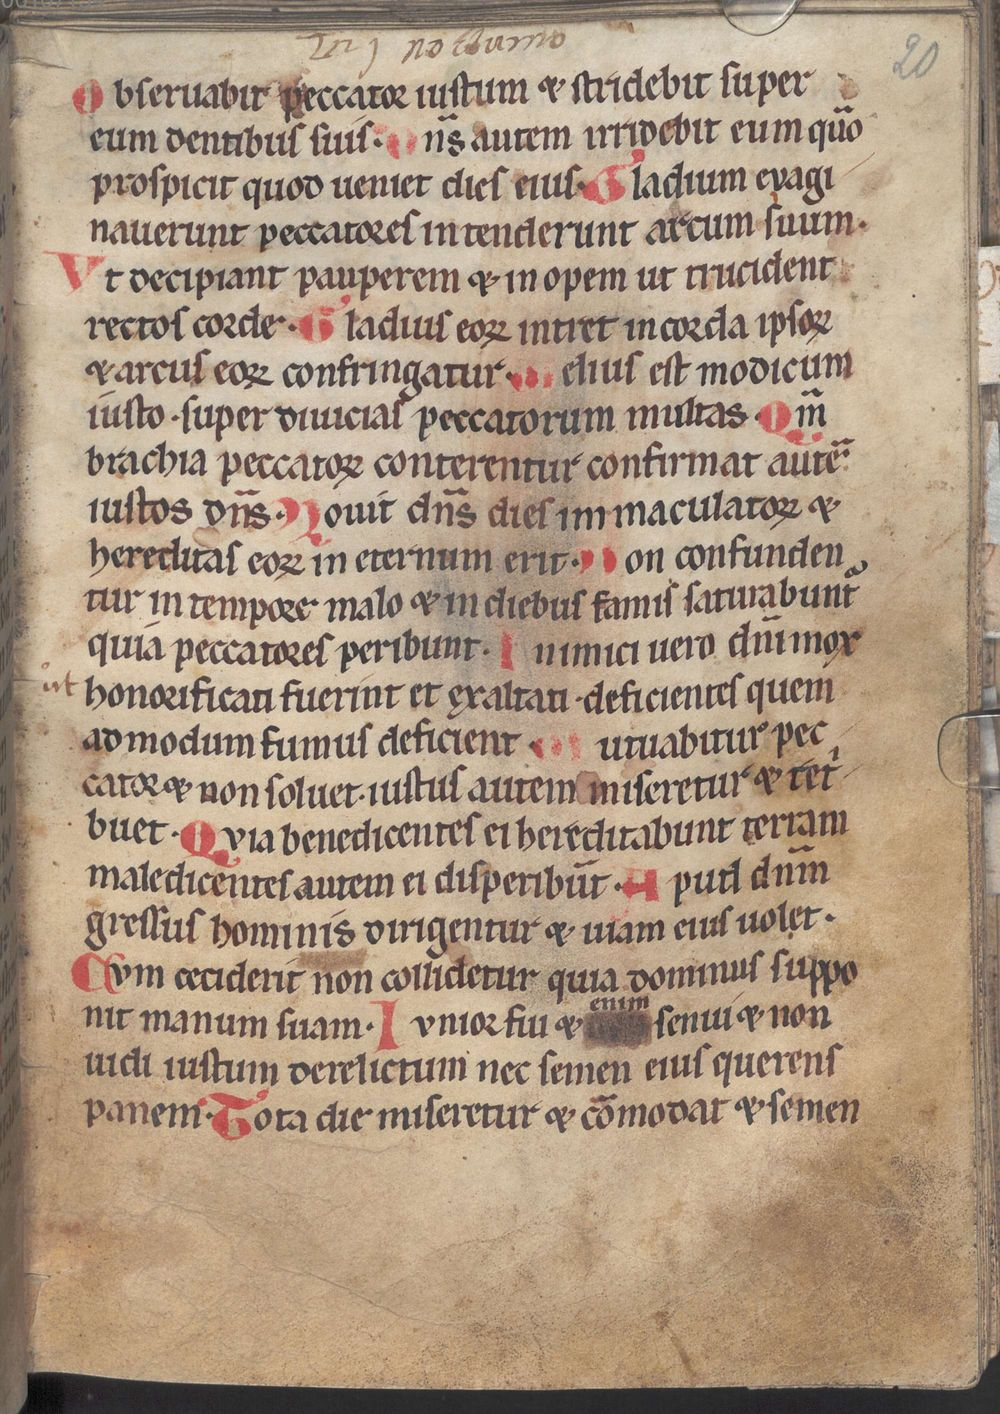 20
Obseruabit peccator iustum & stridebit super
eum dentibus suis. Dn̄s autem irridebit eum qūo
prospicit quod ueniet dies eius. Gladium euagi
nauerunt peccatores intenderunt arcum suum.
Vt decipiant pauperem & inopem ut trucident
rectos corde. Gladius eoꝝ intret in corda ipsoꝝ
& arcus eoꝝ confringatur. Melius est modicum
iusto · super diuicias peccatorum multas. Qm̄
brachia peccatoꝝ conterentur confirmat autē
iustos dn̄s. Nouit dn̄s dies immaculatoꝝ &
hereditas eoꝝ in eternum erit. Non confunden
tur in tempore malo & in diebus famis saturabunt᷑
quia peccatores peribunt. Inimici uero dn̄i mox
ut honorificati fuerint et exaltati · deficientes quem
admodum fumus deficient. Mutuabitur pec
cator & non soluet · iustus autem miseretur & tri
buet. Quia benedicentes ei hereditabunt terram
maledicentes autem ei disperibūt. Aput dn̄m
gressus hominis dirigentur & uiam eius uolet.
Cvm ceciderit non collidetur quia dominus suppo
nit manum suam. Ivnior fui & enim senui & non
uidi iustum derelictum nec semen eius querens
panem. Tota die miseretur & cōmodat & semen